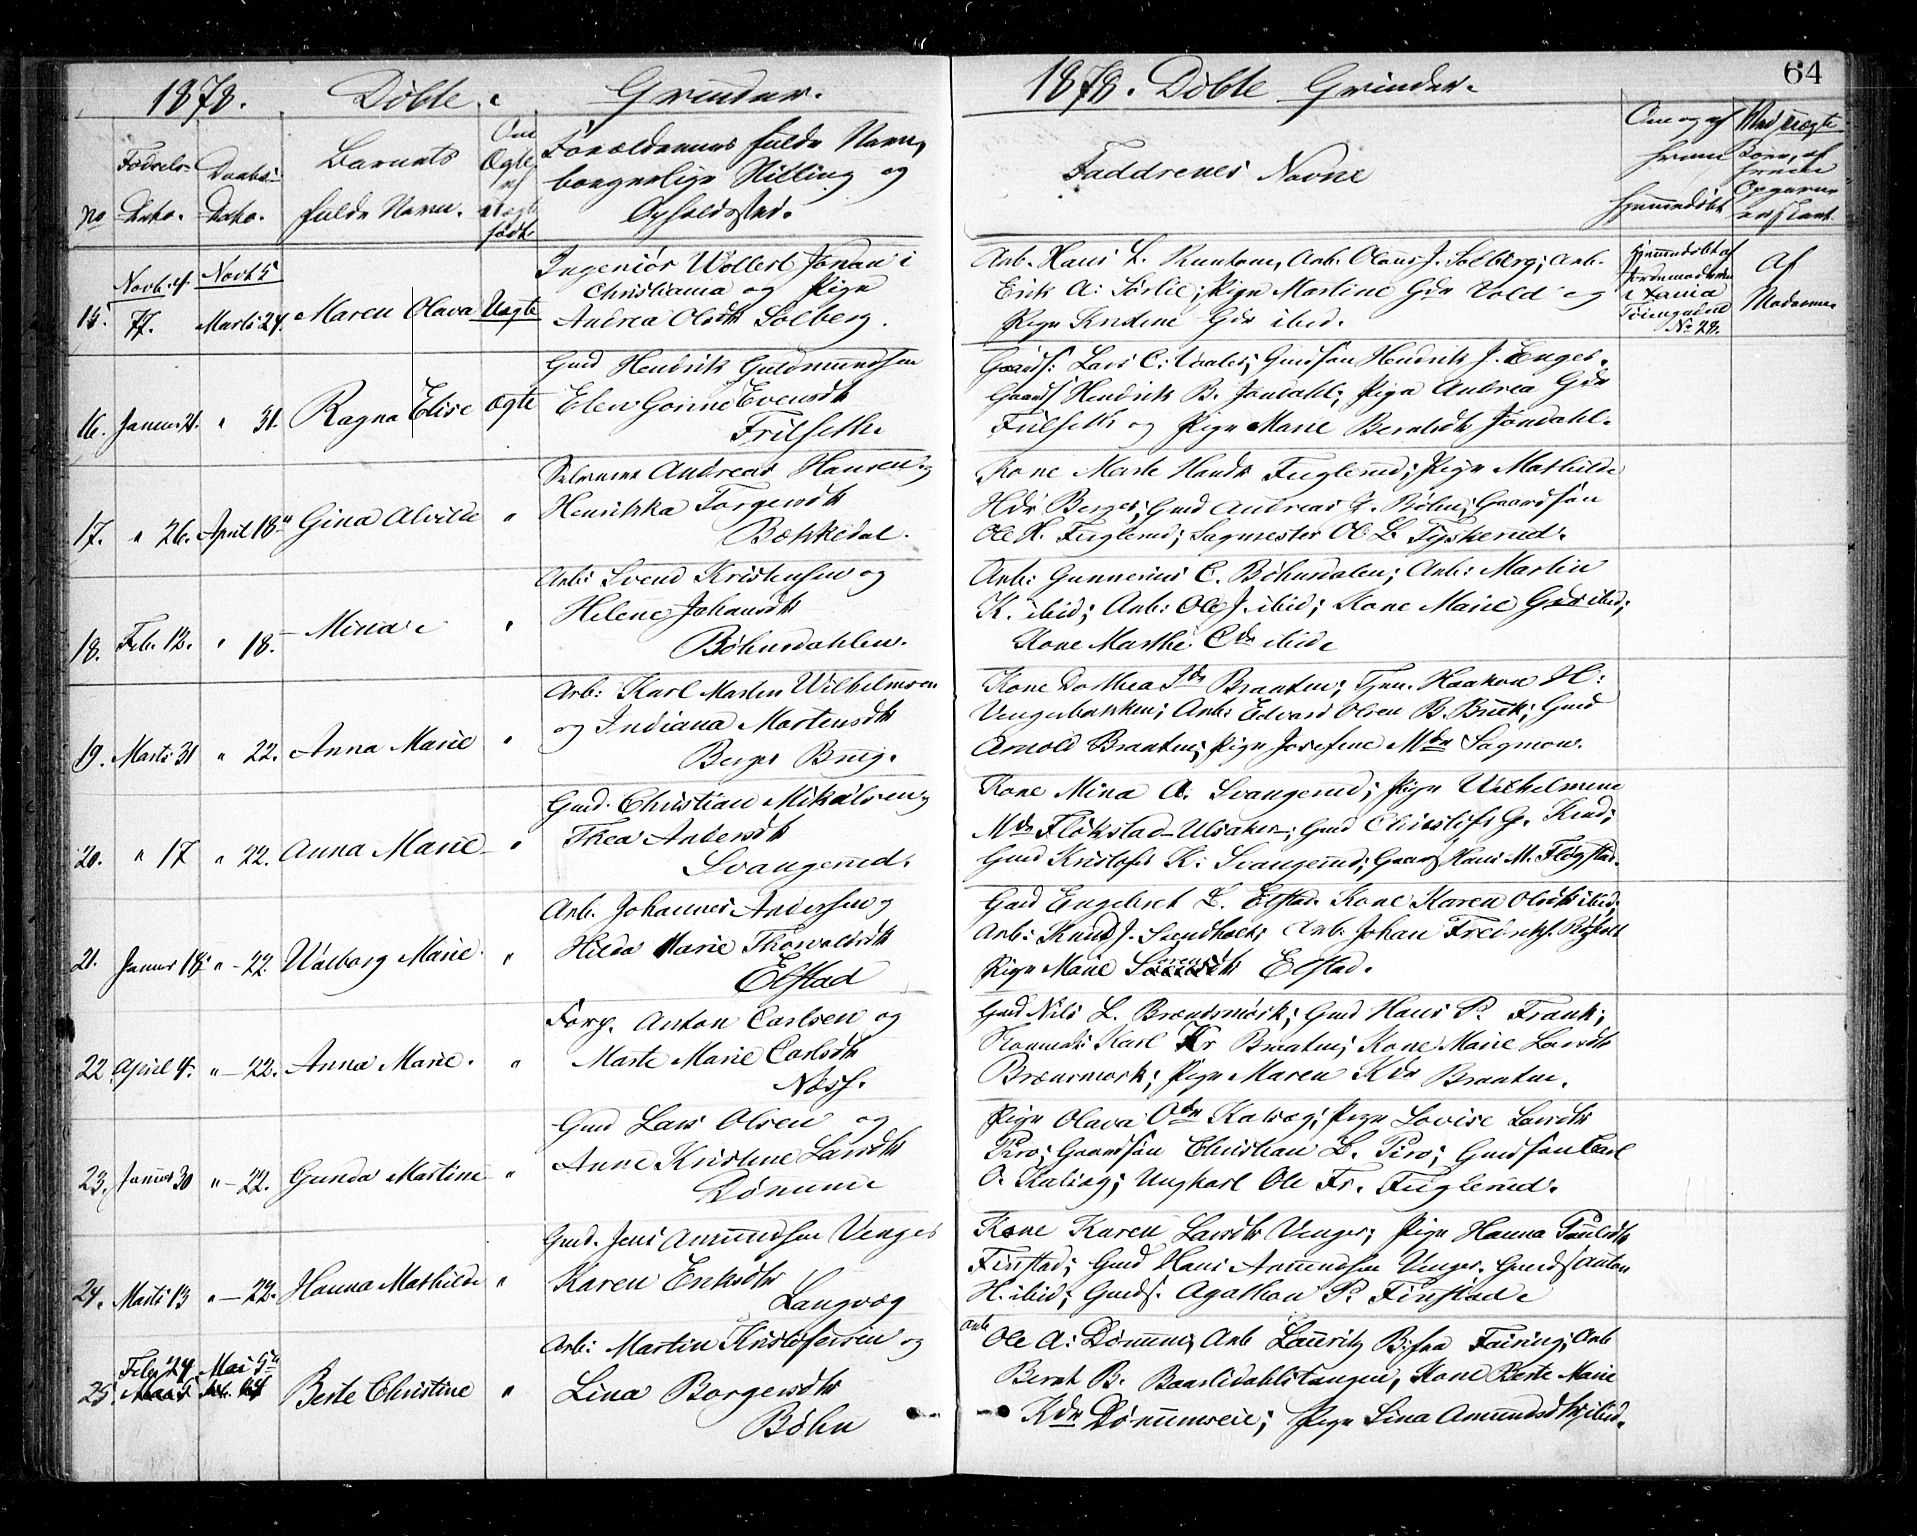 1878. Døbte Grinder.
1878. Døbte Grinder.
64
No
Fødsels-
Dato.
Daabs-
Dato.
Barnets
fulde Navn.
Om
Ægte
Uægte
født.
Forældrenes fulde Navn,
borgerlige Stilling og
Opholdssted.
Faddrenes Navne
Om og af
hvem
hjemmedøbt
Ved uægte
Børn, af
hvem
15. Novb. 4. 77. Novb 5 Marts 24. Maren Olava Uægte
Ingeniør Wollert Jonan i
Christiania og Pige
Andrea Olsdtr Solberg.
Arb. Hans L. Runtom, Arb. Olaus J. Solberg; Arb.
Erik A: Sørlie; Pige Martine Gdr Vold og
Pige Gdr ibid.
Hjemmedøbt af
Jordemoderen
No 28.
Af
16. Januar 21. " 31. Ragna Elise Ægte
Gmd Hendrik Guldmundsen
Elen Gorine Evensdtr
Frilseth.
Gaards: Lars C. Gmdsøn Hendrik J. Enger.
Gaards Hendrik B. Jondahl; Pige Andrea Gdr
og Pige Marie Berntsdtr Jondahl.
17. " 26. April 18. Gina Alvilde "
Selveier Andreas Hansen og
Henrikka Torgersdtr
Bækkedal.
Kone Marte Hansdr Fuglerud; Pige Mathilde
Hdr Berger; Gmd Andreas Bøhn; Gaardsøn
Ole H. Fuglerud; Sagmester Ol L. Tyskerud.
18. Feb. 12. " 18. Mina "
Arb: Svend Kristensen og
Helene Johansdtr
Bøhnsdahlen.
Arb: Gunnerius C. Bøhnsdalen; Arb: Martin
K. ibid; Arb: Ole J. ibid; Kone Marie Gdr ibid;
Kone Marthe Cdr ibid
19. Marts 31 " 22. Anna Marie "
Arb: Karl Martin Wilhelmsen
og Indiana Mortensdtr
Berger Brug.
Kone Dorthea Jdr Braaten; Tjen. Haakon H:
Vengerbakken; Arb: Edvard Olsen B. Brug; Gmd
Arnold Braaten; Pige Josefine Mdr Sagmoen.
20. " 17 " 22. Anna Marie "
Gmd. Christian Mikalsen og
Thea Andersdtr
Svangerud.
Kone Mina A. Svangerud; Pige Wilhelmine
Mdr Fløkstad Ulvaker; Gmd Christofr G. Krud;
Gmd Kristofr K: Svangerud; Gaards Hans M. Fløgstad.
21. Januar 18 " 22 Walborg Marie "
Arb. Johannes Andersen og
Hilda Marie Thorvaldsdtr
Elstad
Gmd Engebret L. Elstad. Kone Karen Olsdtr ibid.
Arb: Knud J. Arb. Johan Fredriks.
Pige Marie Sørensdtr Elstad.
22 April 4. " 22. Anna Marie. "
Forp. Anton Carlsen og
Marte Marie Carlsdtr
Næss.
Gmd Nils L. Brændsmork; Gmd Hans P. Frank;
Karl Kr Braaten; Kone Marie Larsdtr
Brænsmork; Pige Maren Kdr Braaten.
23. Januar 30 " 22. Gunda Martine "
Gmd Lars Olsen og
Anne Kristine Larsdtr
Dønnum
Pige Olava Odr Kalvag; Pige Lovise Larsdtr
Piro; Gaardsøn Christian L. Piro; Gmdsøn Carl
O. Ungkarl Ole Fr. Fuglerud.
24. Marts 13 " 22. Hanna Mathilde "
Gmd. Jens Amundsen Venger
Karen Eriksdtr
Langvæg
Kone Karen Larsdtr Venger; Pige Hanna Paulsdtr
Finstad; Gmd Hans Amundsen Venger. Gmds Anton
H. ibid; Gmds. Agathon P. Finstad
25 Febr 24 Mai 5 Berte Christine "
Arb: Martin Kristofersen og
Lina Borgersdtr
Bøhn
Arb Ole A: Dønnum, Arb Lauritz B. fra Foiring; Arb
Bernt B. Baarlidahlstangen, Kone Berte Marie
Kdr Dønnumseie; Pige Lina Amundsdtr ibid.